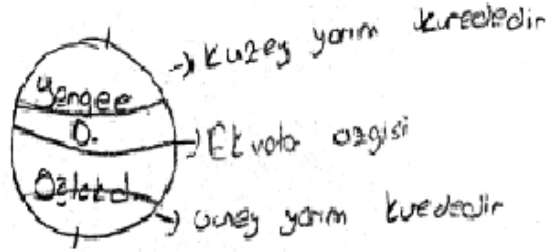 kuzey yarım kurededir
Yengeç
0.
Ekvator çizgisi
Oğlak d.
Güney yarım kurededir